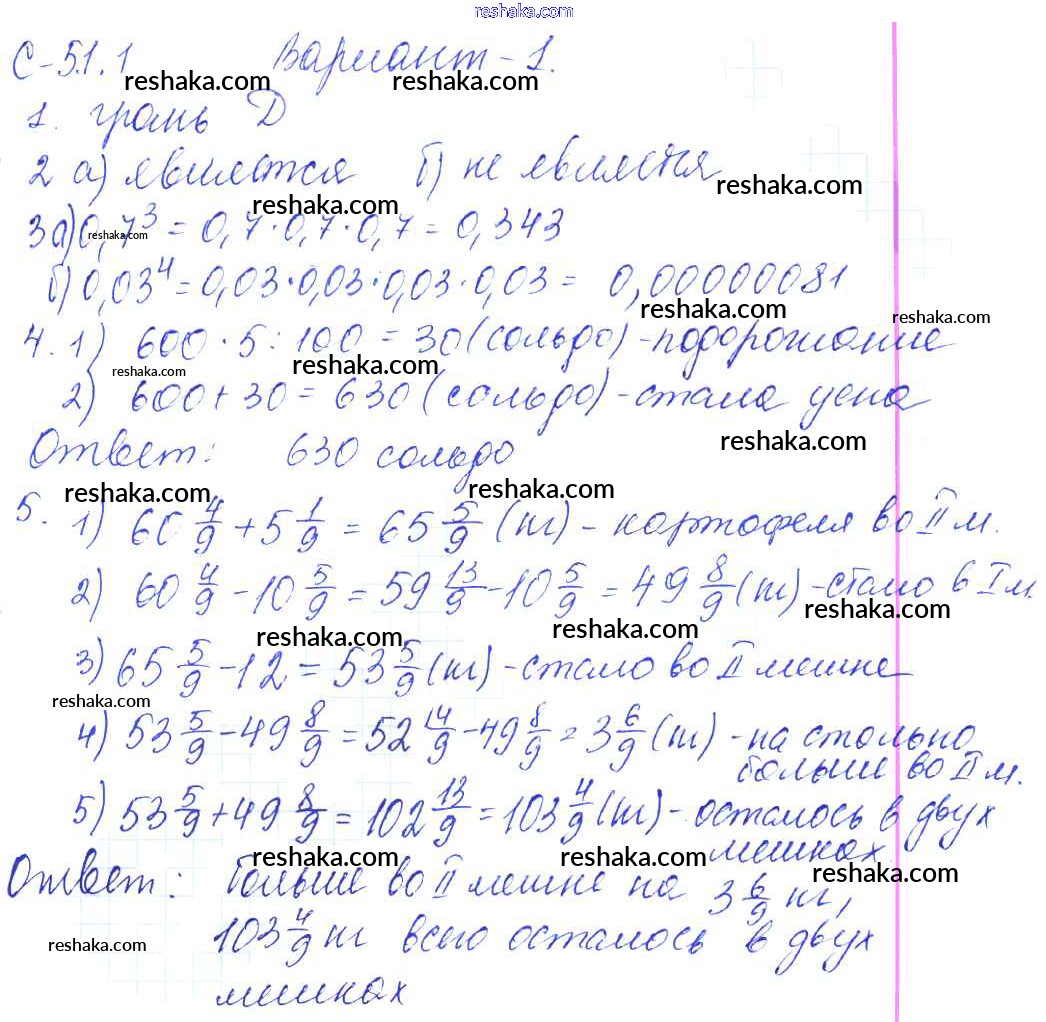 reshaka.com
С-51.1 Вариант-1.
reshaka.com reshaka.com
1. грань D
2 а) является б) не является
reshaka.com
reshaka.com
3а) 0,7³ = 0,7·0,7·0,7 = 0,343
reshaka.com
б) 0,03⁴ = 0,03·0,03·0,03·0,03 = 0,00000081
reshaka.com reshaka.com
4. 1) 600·5:100 = 30 (сольдо) - подорожание
reshaka.com reshaka.com
2) 600+30 = 630 (сольдо) - стала цена
reshaka.com
Ответ: 630 сольдо
reshaka.com reshaka.com
5. 1) 60 4/9 + 5 1/9 = 65 5/9 (кг) - картофеля во II м.
2) 60 4/9 - 10 5/9 = 59 13/9 - 10 5/9 = 49 8/9 (кг) - стало в I м.
reshaka.com reshaka.com reshaka.com
3) 65 5/9 - 12 = 53 5/9 (кг) - стало во II мешке
reshaka.com
4) 53 5/9 - 49 8/9 = 52 14/9 - 49 8/9 = 3 6/9 (кг) - на столько
больше во II м.
5) 53 5/9 + 49 8/9 = 102 13/9 = 103 4/9 (кг) - осталось в двух
мешках
reshaka.com reshaka.com reshaka.com
Ответ: больше во II мешке на 3 6/9 кг,
103 4/9 кг всего осталось в двух
reshaka.com
мешках